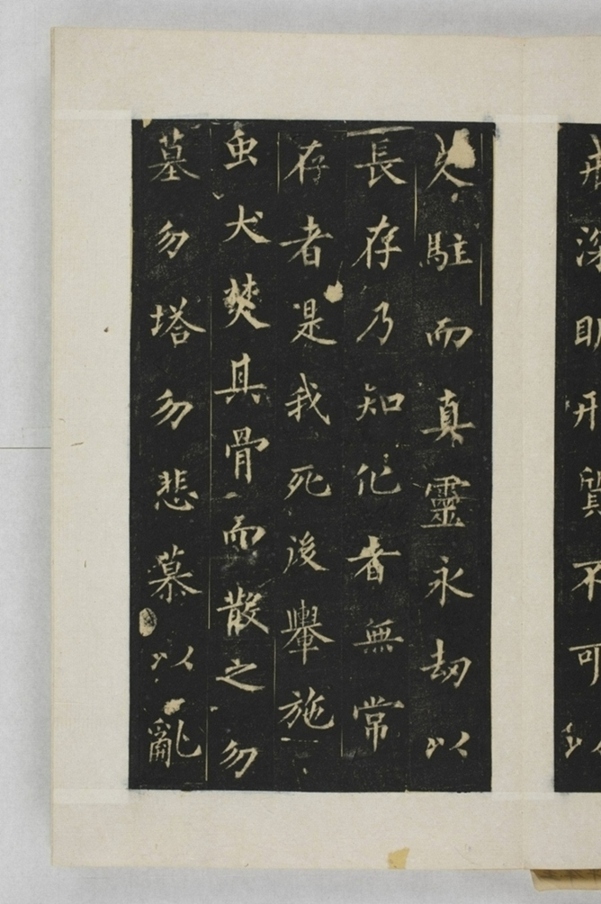 戒深明形質不可以
久駐而真靈永劫以
長存乃知化者無常
存者是我死後轝施
虫犬焚其骨而散之勿
墓勿塔勿悲慕以亂